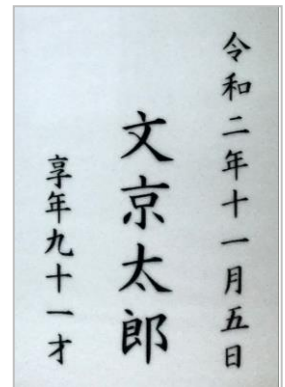 令和二年十一月五日
文京太郎
享年九十一才